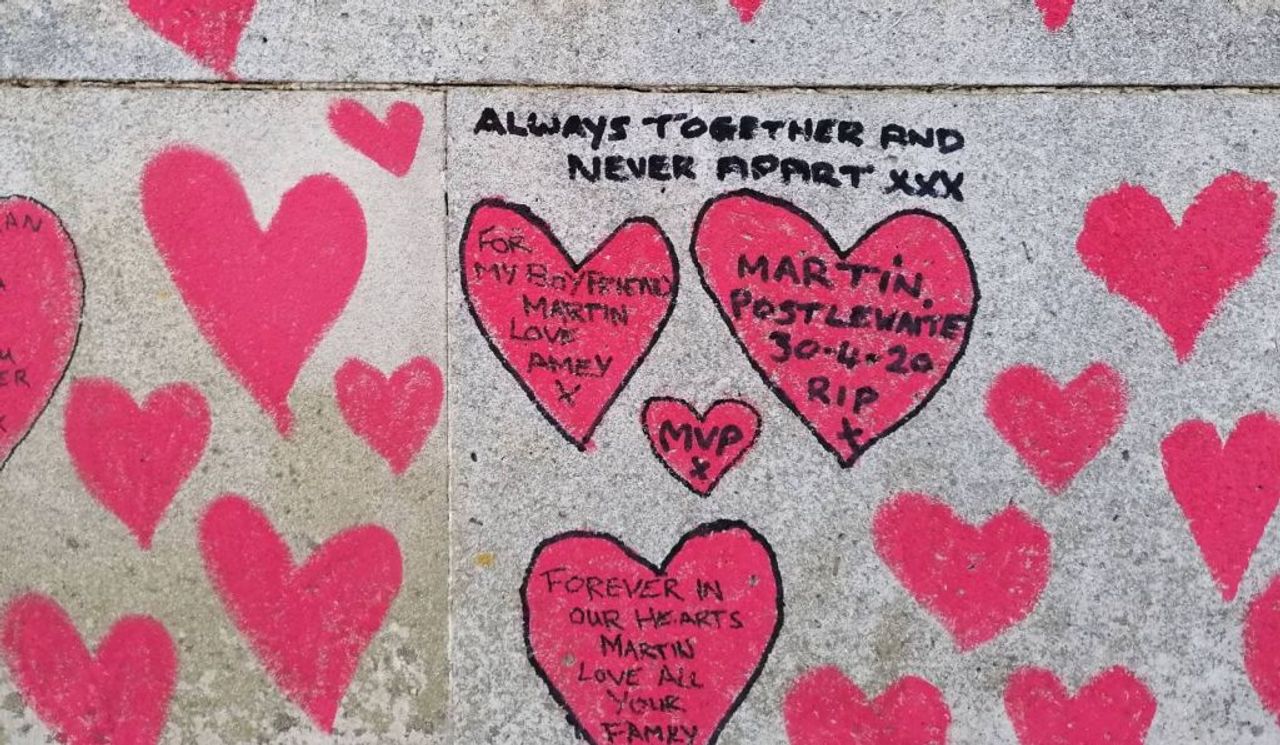 ALWAYS TOGETHER AND
NEVER APART XXX
FOR
MY BOYFRIEND
MARTIN
LOVE
AMEY
X
MARTIN.
POSTLEWAITE
30-4-20
RIP
X
MVP
X
FOREVER IN
OUR HEARTS
MARTIN
LOVE ALL
YOUR
FAMILY
AN
ER